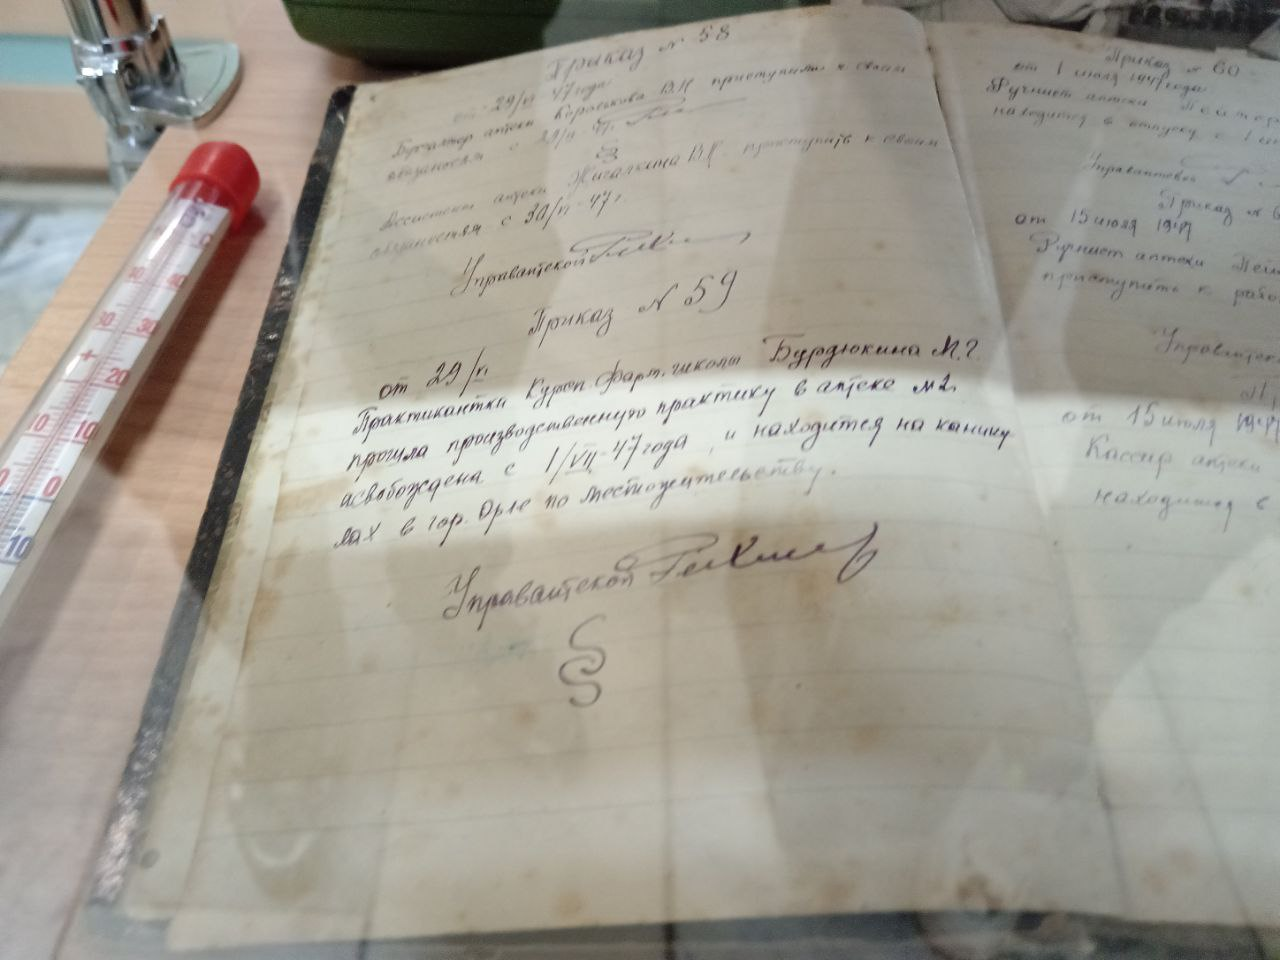 Приказ № 58
от 29/VI 47 года
Бухгалтер аптеки В.Н приступила к своим
обязаностям с 29/VI 47г.
§
Ассистент аптеки Жигалкина В.Я. приступить к своим
обязаностям с 30/VI-47г.
Управаптекой
Приказ № 59
от 29/VI
Практикантки Курск. Фарм. школы Бурдюкина М.Г.
прошла производственную практику в аптеке №2.
асвобождена с 1/VII-47 года, и находится на канику
лах в гор. Орле по местожительству.
Управаптекой
§
Приказ № 60
от 1 июля 1947 года
Ручнист аптеки
находится в отпуску с 1
Управаптекой
Приказ №
от 15 июля 1947
Ручнист аптеки
приступить к
от 15 июля 1947
Кассир аптеки
находится в